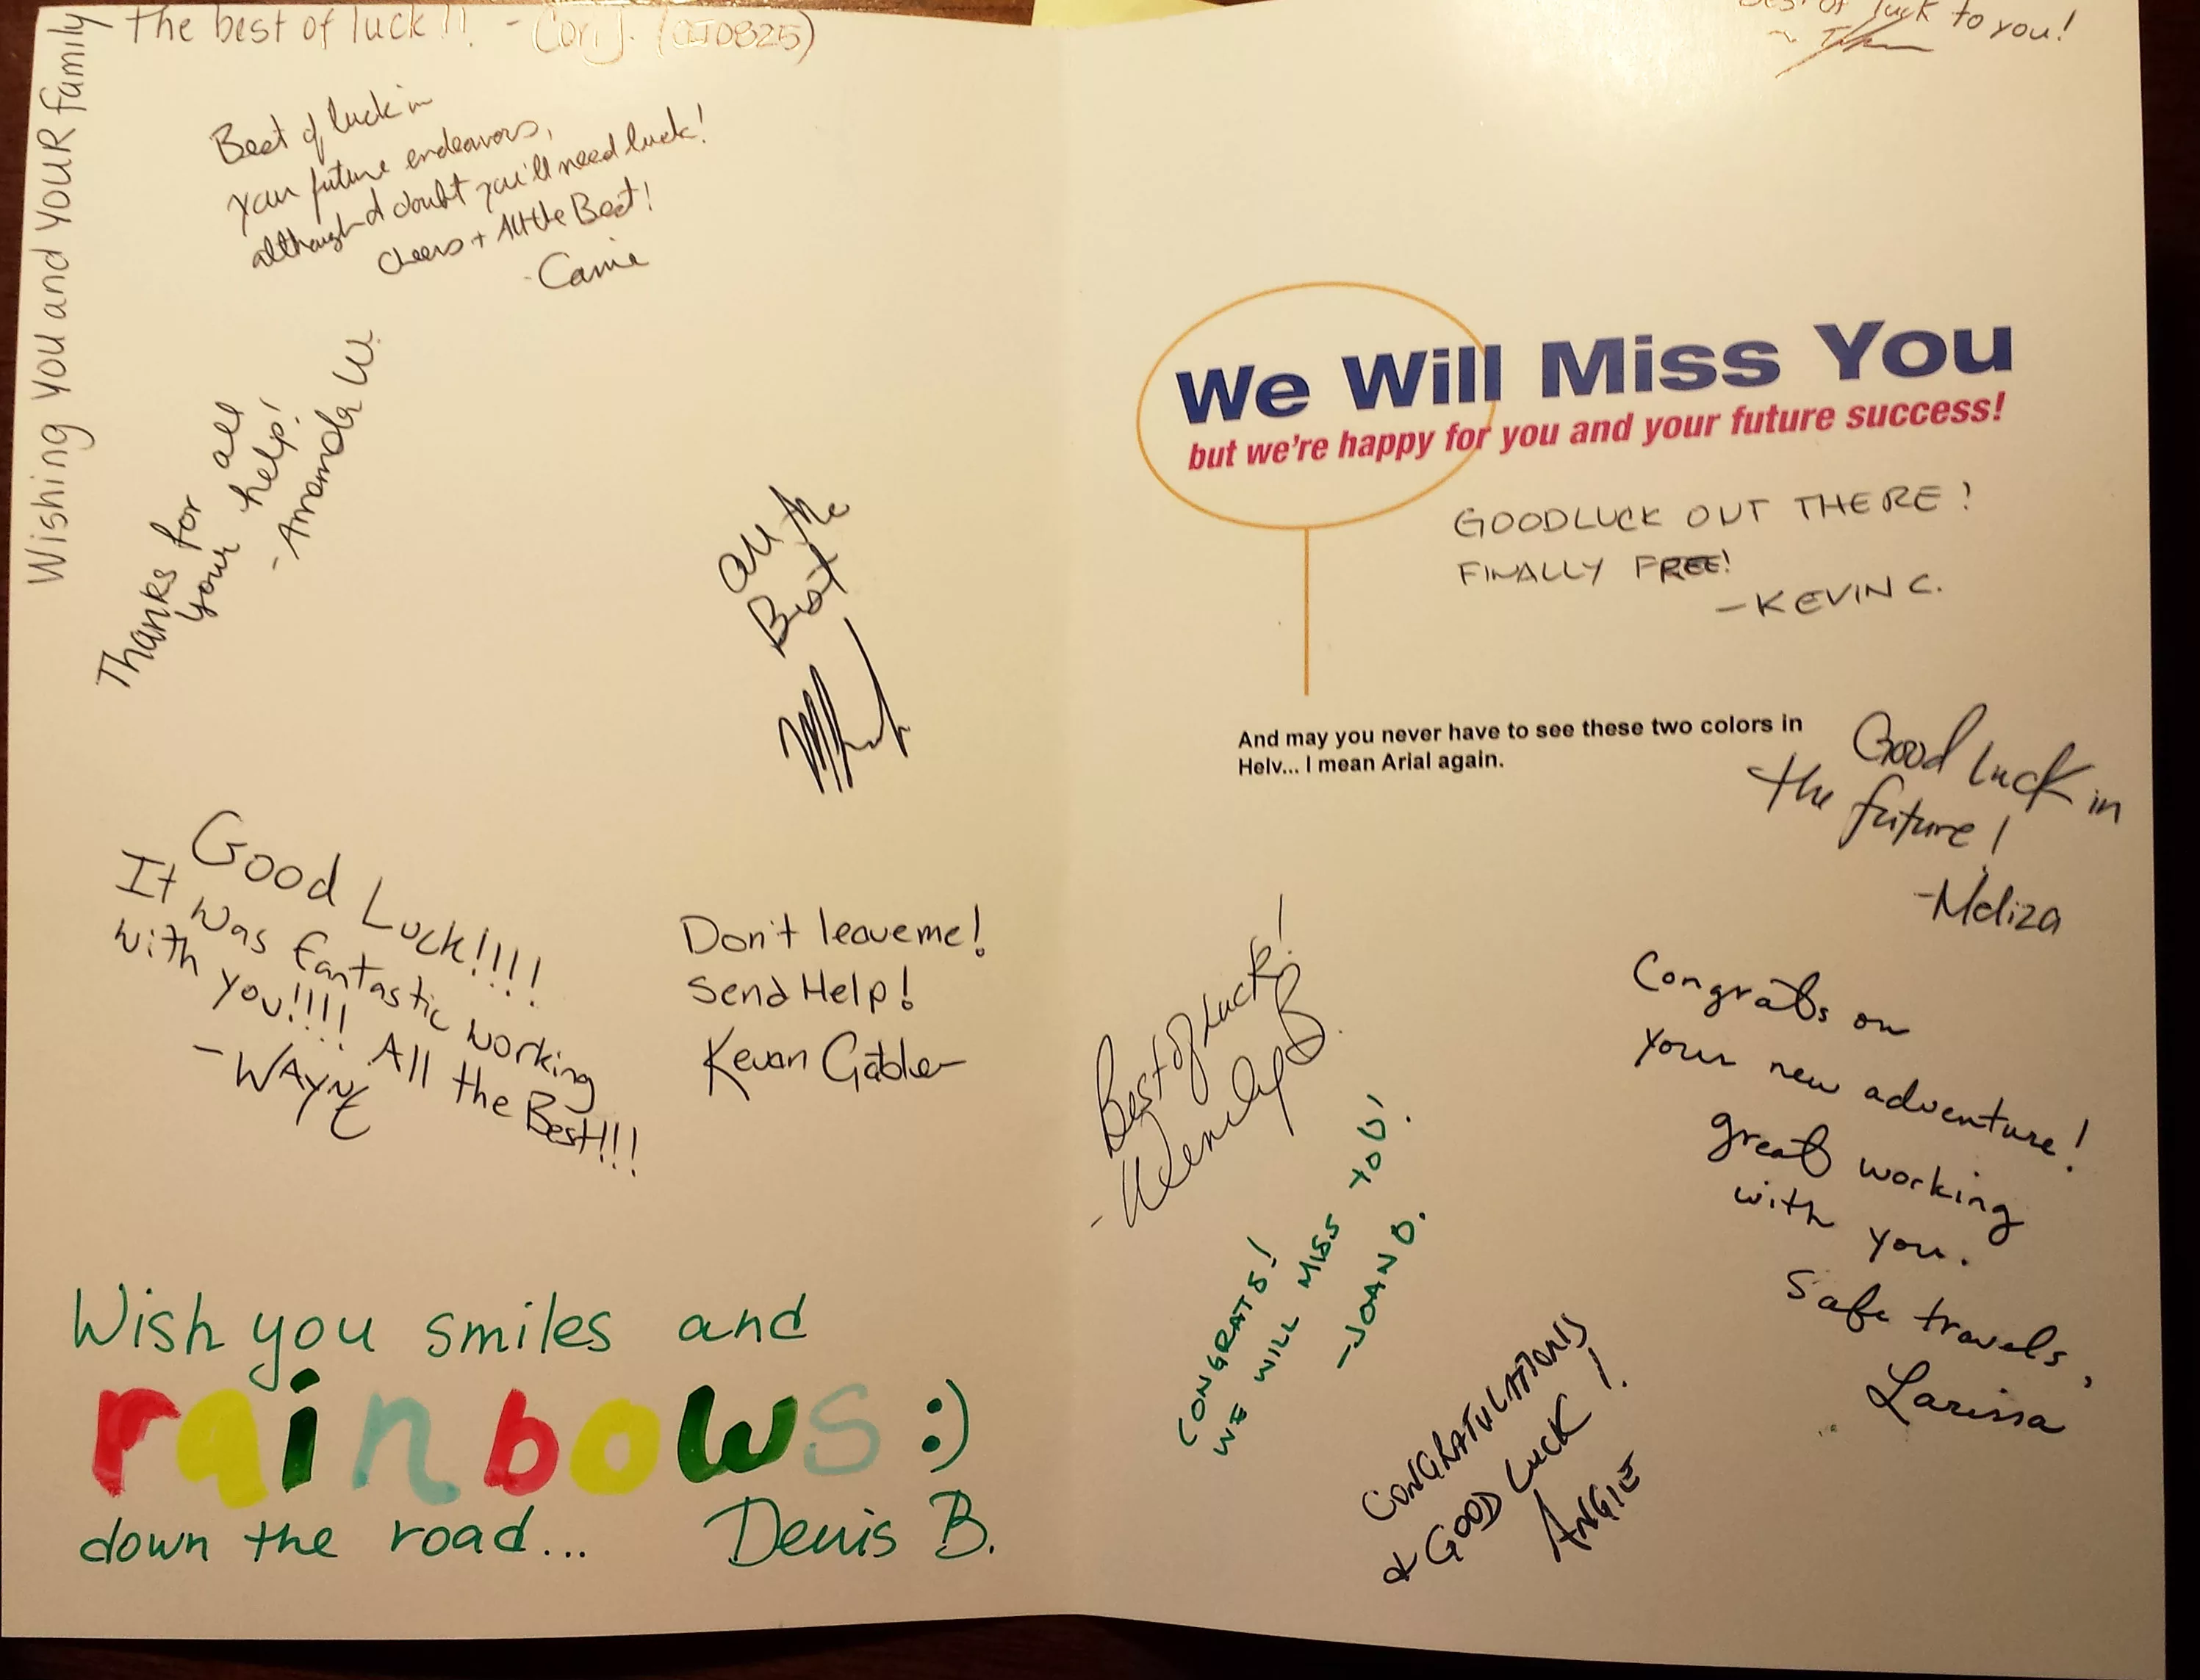 Wishing you and your family
the best of luck!! - Cori J. (CJ0825)
Best of luck in
your future endeavors,
although I doubt you'll need luck!
Cheers + All the Best!
- Carrie
Thanks for all
your help!
- Amanda W.
All the
Best
Good Luck!!!!
It was fantastic working
with you!!!! All the Best!!!
- WAYNE
Don't leave me!
Send Help!
Kevan
Wish you smiles and
rainbows :)
down the road... Denis B.
Best of luck to you!
We Will Miss You
but we're happy for you and your future success!
GOODLUCK OUT THERE!
FINALLY FREE!
- KEVIN C.
And may you never have to see these two colors in
Helv... I mean Arial again.
Good luck in
the future!
- Meliza
Best of Luck!
- Wendy B.
Congrats on
your new adventure!
great working
with you.
Safe travels,
Larissa
CONGRATS!
WE WILL MISS YOU!
- JOAN D.
CONGRATULATIONS
& GOOD LUCK!
ANGIE